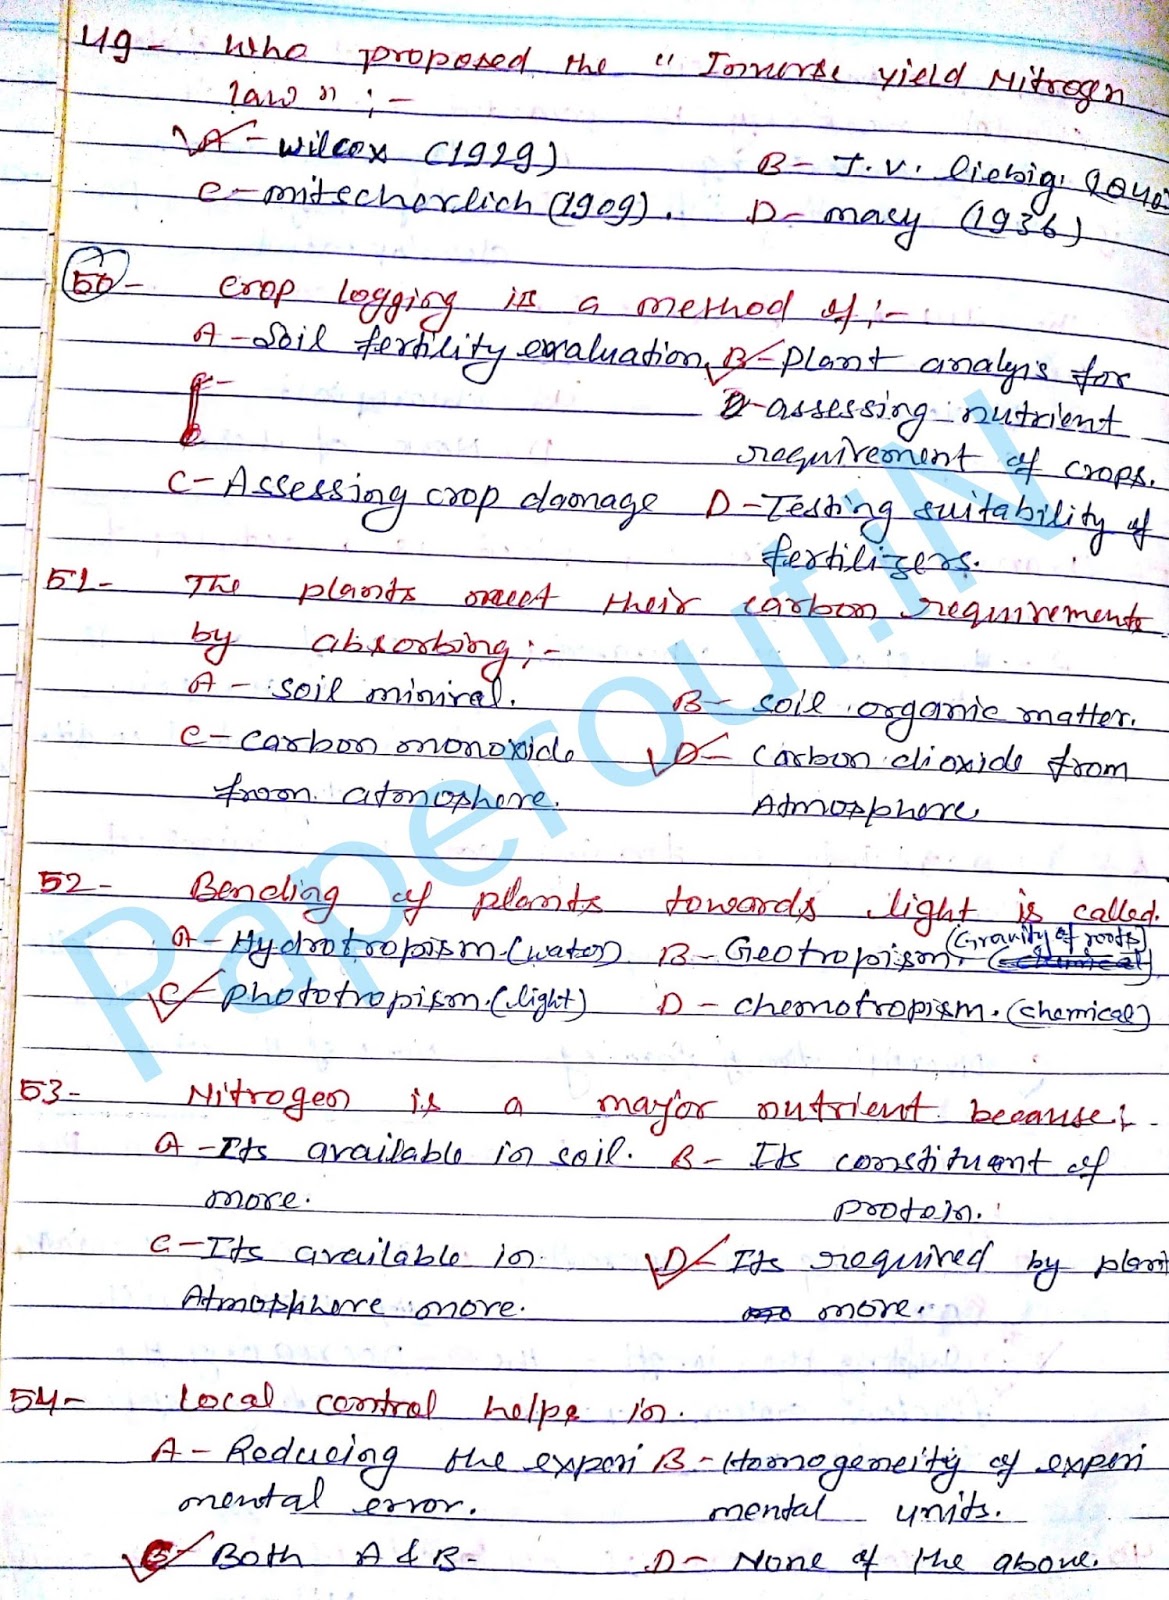 49- Who proposed the "Inverse yield Nitrogen
law" :-
A- Wilcox (1929) B- J.V. liebig. (1840)
C- mitscherlich (1909). D- macy (1936)
50- Crop logging is a method of :-
A- Soil fertility evaluation B- Plant analysis for
assessing nutrient
requirement of crops.
C- Assessing crop damage D- Testing suitability of
fertilizers.
51- The plants meet their carbon requirements
by absorbing :-
A- soil miniral. B- soil organic matter.
C- carbon monoxide D- Carbon dioxide from
from atmophere. Atmosphore
52- Bending of plants towards light is called.
A- Hydrotropism.(water) B- Geotropism. (Gravity of roots)
C- phototropism.(light) D- chemotropism.(chemical)
53- Nitrogen is a major nutrient because :-
A- Its available in soil. B- Its constituent of
more. protein.
C- Its available in D- Its required by plant
Atmosphore more. more.
54- Local control helps in.
A- Reducing the experi B- Homogeneity of experi
mental error. mental units.
C- Both A & B- D- None of the above.
PaperoutiN